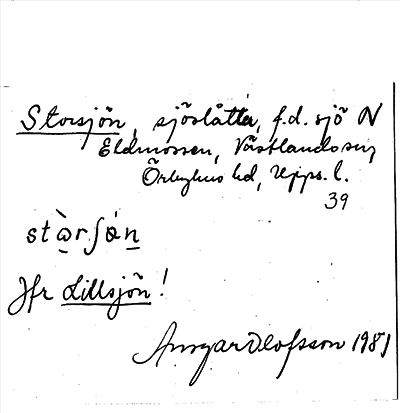 Storsjön, sjöslåtter, f.d. sjö N
Eldmossen, Västlands sn,
Örbyhus hd, Upps. l.
39
stɷ̀rʃøn
Jfr Lillsjön!
Ansgar Olofsson 1981